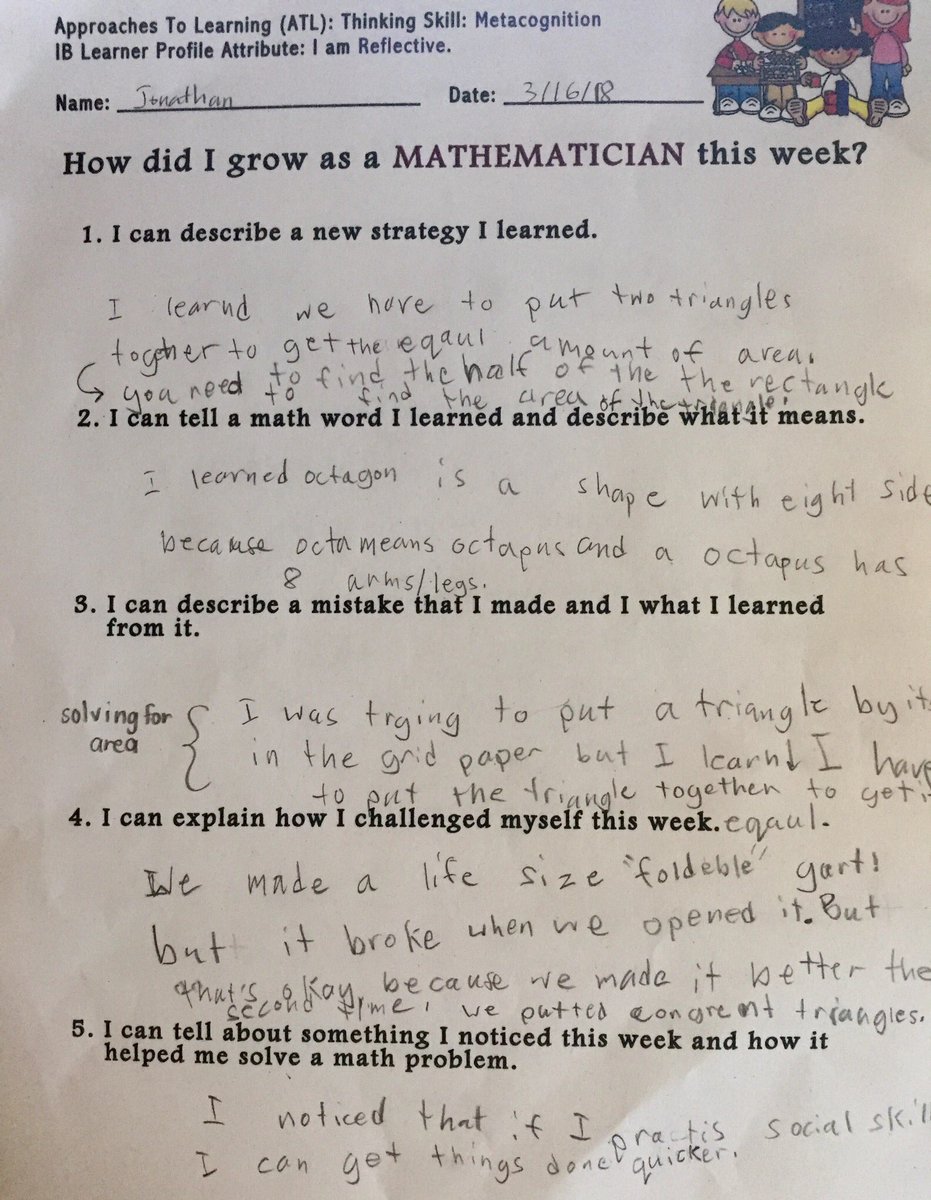 Approaches To Learning (ATL): Thinking Skill: Metacognition
IB Learner Profile Attribute: I am Reflective.
Name: Jonathan Date: 3/16/18
How did I grow as a MATHEMATICIAN this week?
1. I can describe a new strategy I learned.
I learnd we have to put two triangles
together to get the eqaul amount of area.
you need to find the half of the the rectangle
to find the area of the triangle.
2. I can tell a math word I learned and describe what it means.
I learned octagon is a shape with eight side
because octa means octapus and a octapus has
8 arms/legs.
3. I can describe a mistake that I made and I what I learned
from it.
solving for
area
I was trying to put a triangle by it
in the grid paper but I learnd I have
to put the triangle together to get
eqaul.
4. I can explain how I challenged myself this week.
We made a life size "foldeble" yart!
but it broke when we opened it. But
that's okay, because we made it better the
second time, we putted congrent triangles.
5. I can tell about something I noticed this week and how it
helped me solve a math problem.
I noticed that if I practis social skill
I can get things done quicker.